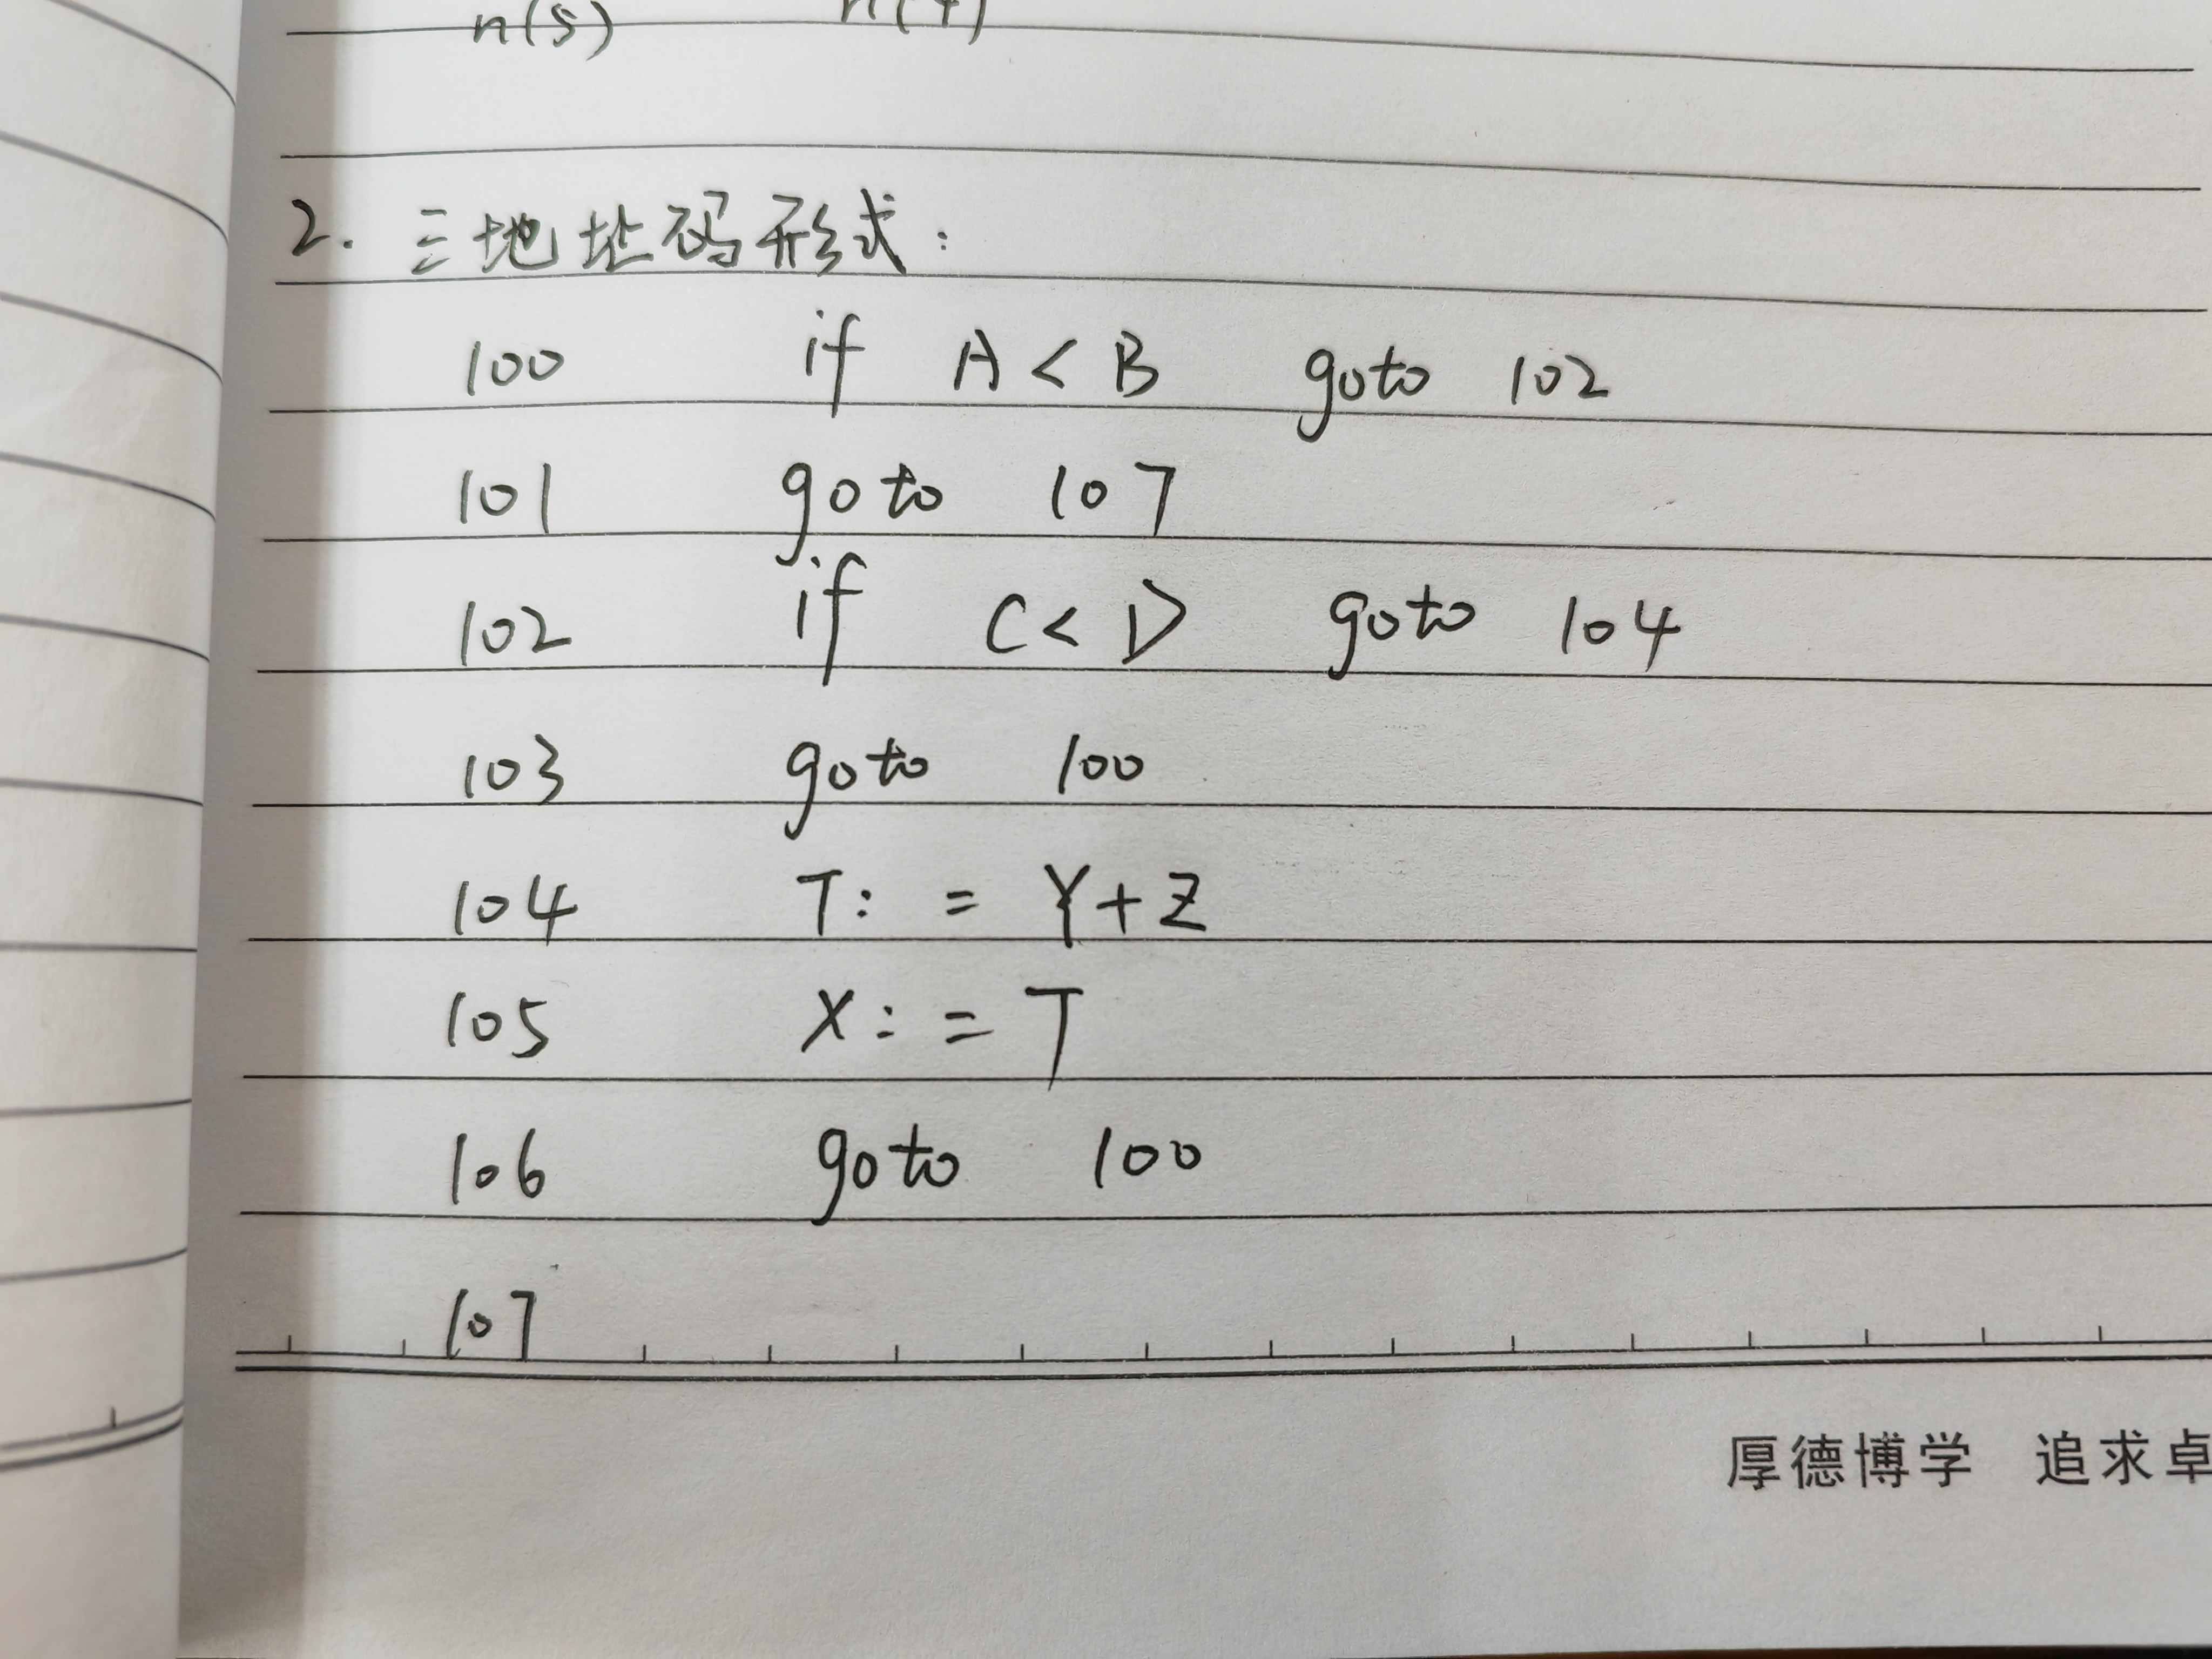 n(5) n(4)
2. 三地址码形式:
100 if A < B goto 102
101 goto 107
102 if C < D goto 104
103 goto 100
104 T: = Y+Z
105 X: = T
106 goto 100
107
厚德博学 追求卓